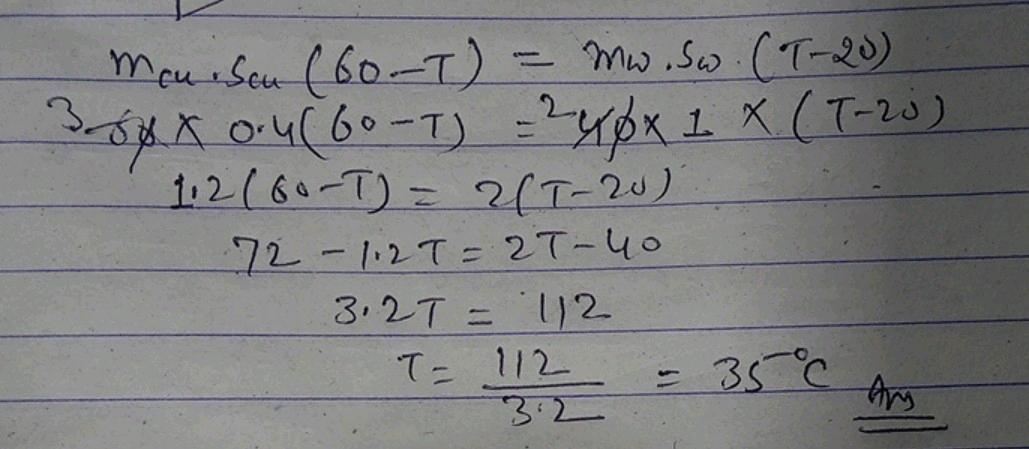 mcu.Scu (60-T) = mw.Sw.(T-20)
3 60 x 0.4(60-T) = 2 40 x 1 x (T-20)
1.2(60-T) = 2(T-20)
72 - 1.2T = 2T-40
3.2T = 112
T = 112/3.2 = 35°C Ans